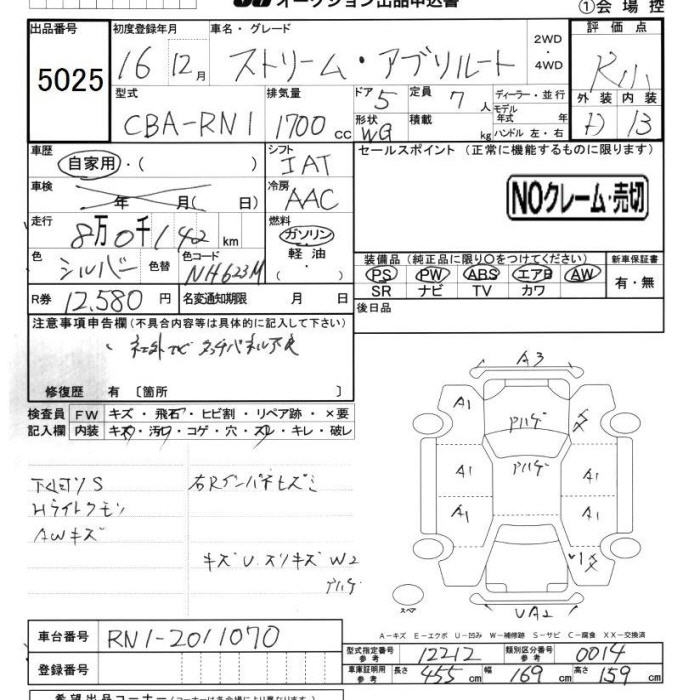 オークション出品申込書
①会場控
出品番号 5025
初度登録年月 16 12月
車名・グレード ストリーム・アブソルート
2WD・4WD
評価点 R小
型式 CBA-RN1
排気量 1700cc
ドア 5
定員 7人
形状 WG
積載 kg
ディーラー・並行
モデル年式 年
ハンドル 左・右
外装 D
内装 B
車歴 自家用・( )
シフト IAT
セールスポイント (正常に機能するものに限ります)
NOクレーム・売切
車検 年 月( 日)
冷房 AAC
走行 8万0千142km
燃料 ガソリン 軽油・( )
色 シルバー 色替
色コード NH623M
装備品 (純正品に限り○をつけてください)
PS PW ABS エアB AW
SR ナビ TV カワ
新車保証書 有・無
R券 12,580円
名変通知期限 月 日
後日品
注意事項申告欄 (不具合内容等は具体的に記入して下さい)
社外ナビ タッチパネル不良
修復歴 有 〔箇所 〕
検査員記入欄
FW キズ・飛石・ヒビ割・リペア跡・×要
内装 キズ・汚レ・コゲ・穴・スレ・キレ・破レ
Hライトクモリ
AWキズ
キズU.スリキズ W2
アハゲ
A3
A1
アハゲ
アハゲ
A1
A1
A1
A1
UA2
スペア
A-キズ E-エクボ U-凹み W-補修跡 S-サビ C-腐食 XX-交換済
車台番号 RN1-2011070
登録番号
型式指定番号 参考 12212
類別区分番号 参考 0014
車庫証明用 参考 長さ 455cm 幅 169cm 高さ 159cm
希望出品コーナー (コーナーは各会場により異なります)